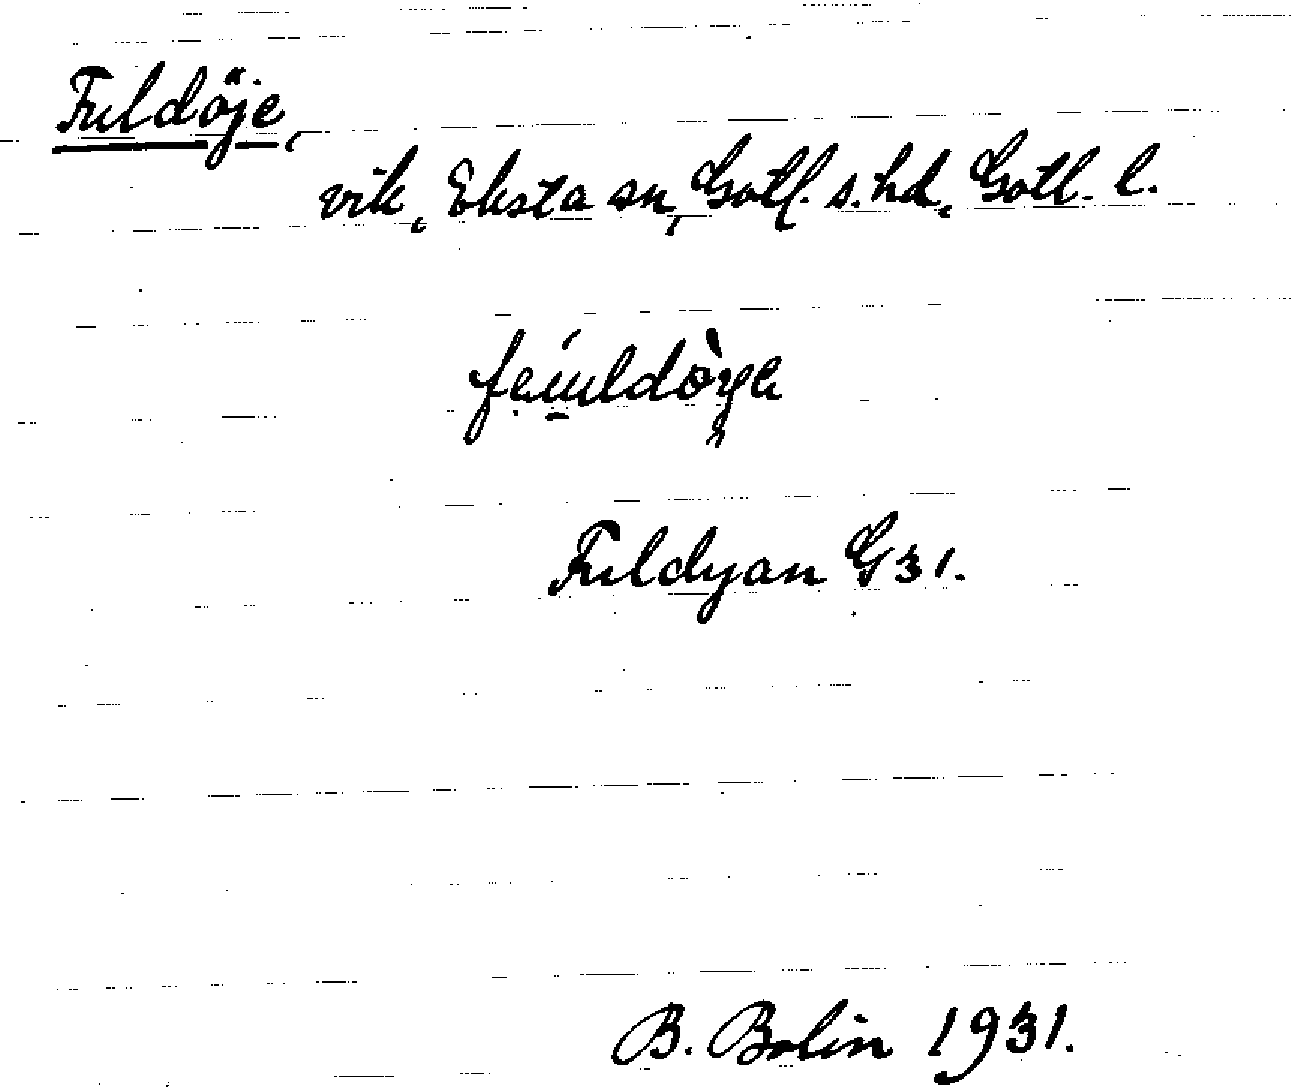 Fuldöje,
vik, Eksta sn, Gotl. s. hd, Gotl. l.
feiuldòye
Fuldyan G31.
B. Bolin 1931.